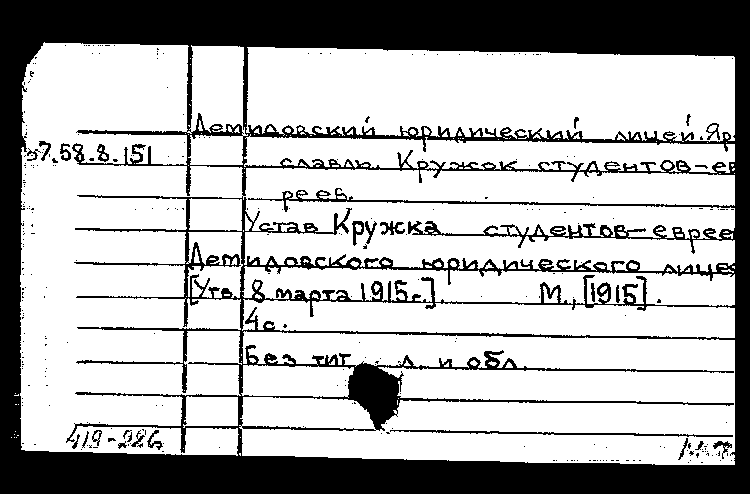 Демидовский юридический лицей. Яро
37.58.8.151 славль. Кружок студентов-ев
реев.
Устав Кружка студентов-еврее
Демидовского юридического лице
[Утв. 8 марта 1915 г.]. М., [1915].
4 с.
Без тит. л. и обл.
419-286